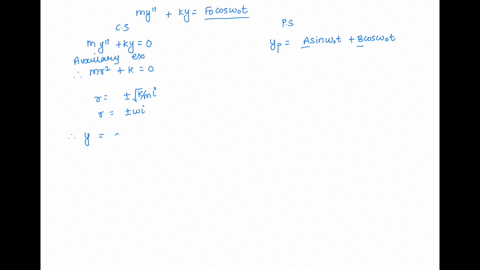 my'' + ky = F₀cosω₀t
C.S
my'' + ky = 0
Auxiliary eqn
∴ mr² + k = 0
r = ±√k/m i
r = ±ωi
∴ y =
P.S
yp = Asinω₀t + Bcosω₀t